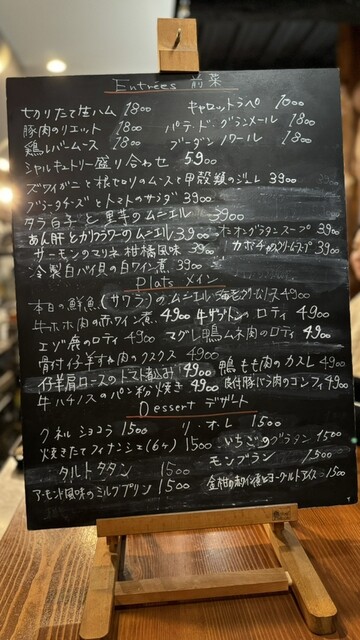 Entrees 前菜
切りたて生ハム 1800 キャロットラペ 1000
豚肉のリエット 1800 パテ・ド・グランメール 1800
鶏レバームース 1800 ブーダンノワール 1800
シャルキュトリー盛り合わせ 5900
ズワイガニと根セロリのムースと甲殻類のジュレ 3900
ブラータチーズとトマトのサラダ 3900
タラ白子と里芋のムニエル 3900
あん肝とカリフラワーのムニエル 3900 オニオングラタンスープ
サーモンのマリネ 柑橘風味 3900 カボチャのクリームスープ 3900
冷製白バイ貝の白ワイン煮 3900
Plats メイン
本日の鮮魚(サワラ)のムニエル 4900
牛ホホ肉の赤ワイン煮 4900 牛ザブトンのロティ 4900
エゾ鹿のロティ 4900 マグレ鴨ムネ肉のロティ 4900
骨付仔羊すね肉のクスクス 4900 鴨もも肉のカスレ 4900
仔羊肩ロースのトマト煮込み 4900 骨付豚バラ肉のコンフィ 4900
牛ハチノスのパン粉焼き 4900
Dessert デザート
クネル ショコラ 1500 リ・オ・レ 1500
焼きたてフィナンシェ(6ヶ) 1500 いちごのグラタン 1500
タルトタタン 1500 モンブラン 1500
アーモンド風味のミルクプリン 1500 金柑の赤ワイン煮とヨーグルトアイス 1500